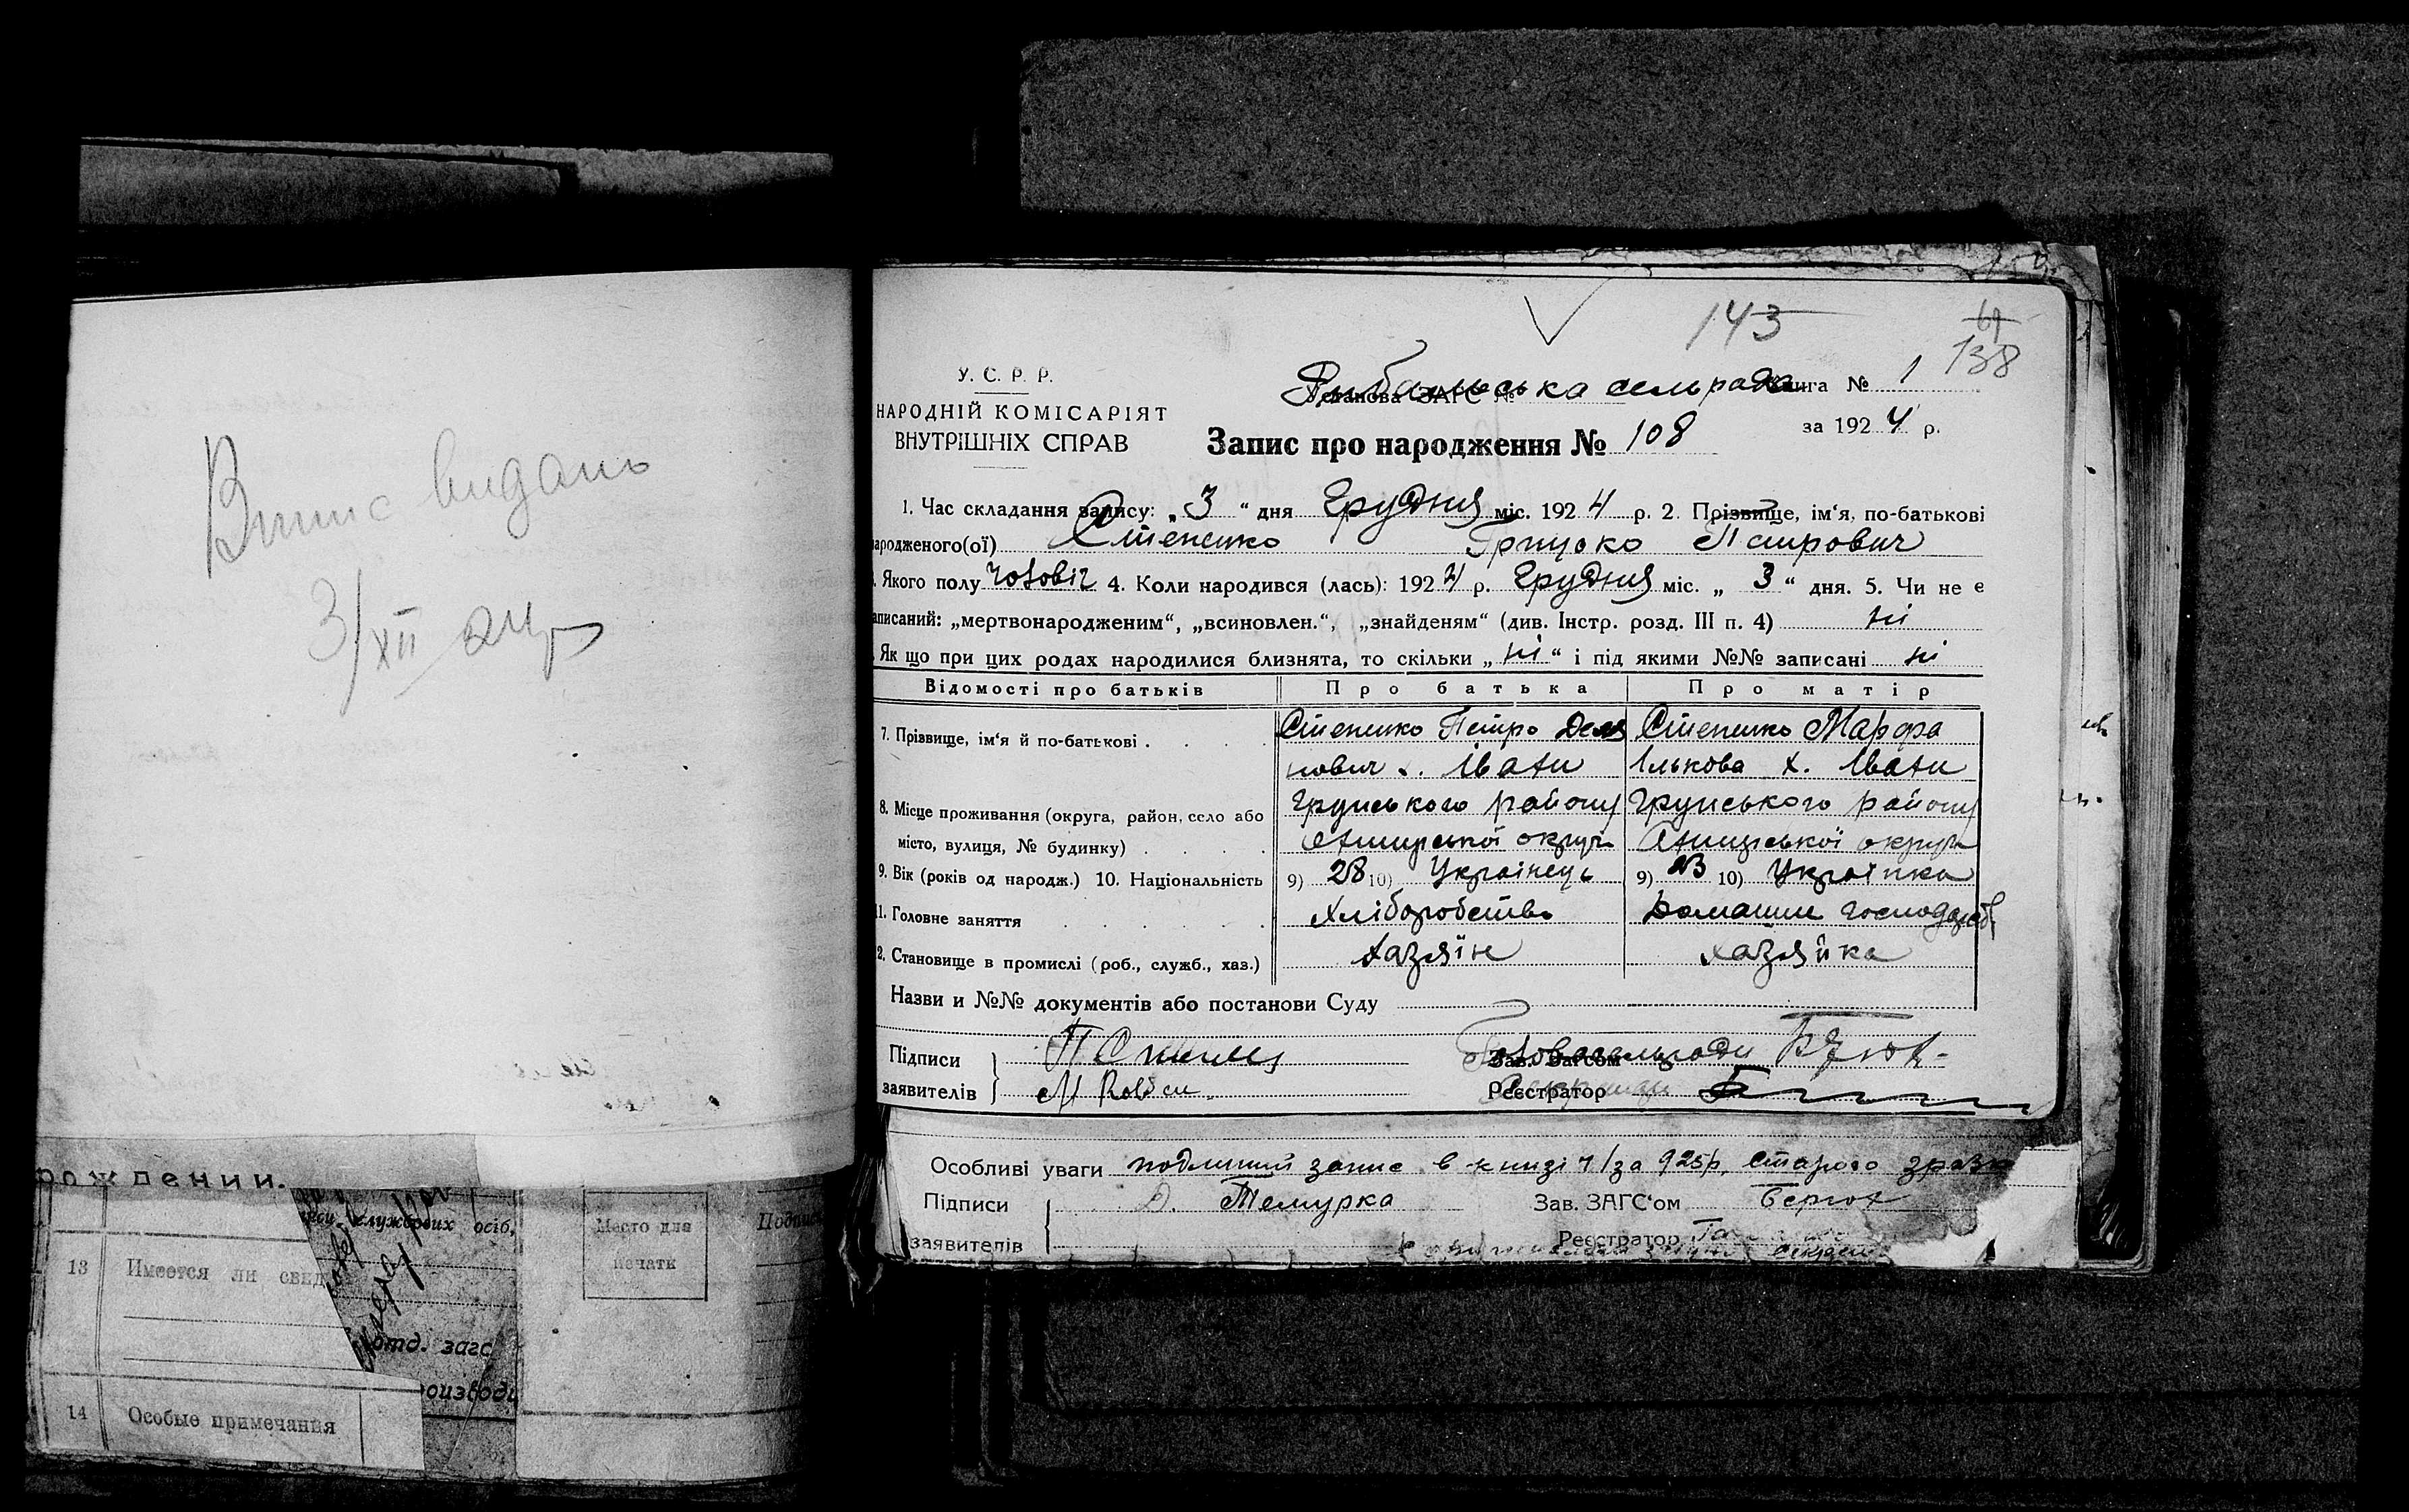 Випис видано
3/XII 24р
рождении.
служебових осіб,
13 Имеется ли свид
отд. загс
14 Особые примечания
Место для
печати
143
61
138
У. С. Р. Р.
НАРОДНІЙ КОМІСАРІЯТ
ВНУТРІШНІХ СПРАВ
Рибальська сельрада
Установа ЗАГС № Книга № 1
за 1924 р.
Запис про народження № 108
1. Час складання запису: „3“ дня Грудня міс. 1924 р. 2. Прізвище, ім‘я, по-батькові
народженого(ої) Степенко Грицько Петрович
Якого полу чоловіч 4. Коли народився (лась): 1924 р. Грудня міс. „3“ дня. 5. Чи не є
записаний: „мертвонародженим“, „всиновлен.“, „знайденям“ (див. Інстр. розд. III п. 4) ні
Як що при цих родах народилися близнята, то скільки „ні“ і під якими №№ записані ні
Відомості про батьків Про батька Про матір
7. Прізвище, ім‘я й по-батькові Степенко Петро Демя Степенко Марфа
нович х. ІваниІлькова х. Івани
8. Місце проживання (округа, район, село або Грунського району Грунського району
місто, вулиця, № будинку) округи округи
9. Вік (років од народж.) 10. Національність 9) 28 10) Українець 9) 23 10) Українка
11. Головне заняття Хліборобство Домашнє господарств
2. Становище в промислі (роб., служб., хаз.) хазяїн хазяйка
Назви и №№ документів або постанови Суду
Підписи Зав. Загсом Голова сельради
заявителів Реєстратор
Особливі уваги подлиний запис в книзі 1/за 925р. старого зразк
Підписи Темурка Зав. ЗАГС‘ом
заявителів Реєстратор